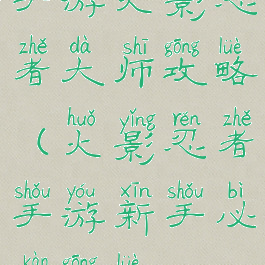 手游火影忍
zhě dà shī gōng lüè
者大师攻略
huǒ yǐng rěn zhě
（火影忍者
shǒu yóu xīn shǒu bì
手游新手必
kàn gōng lüè